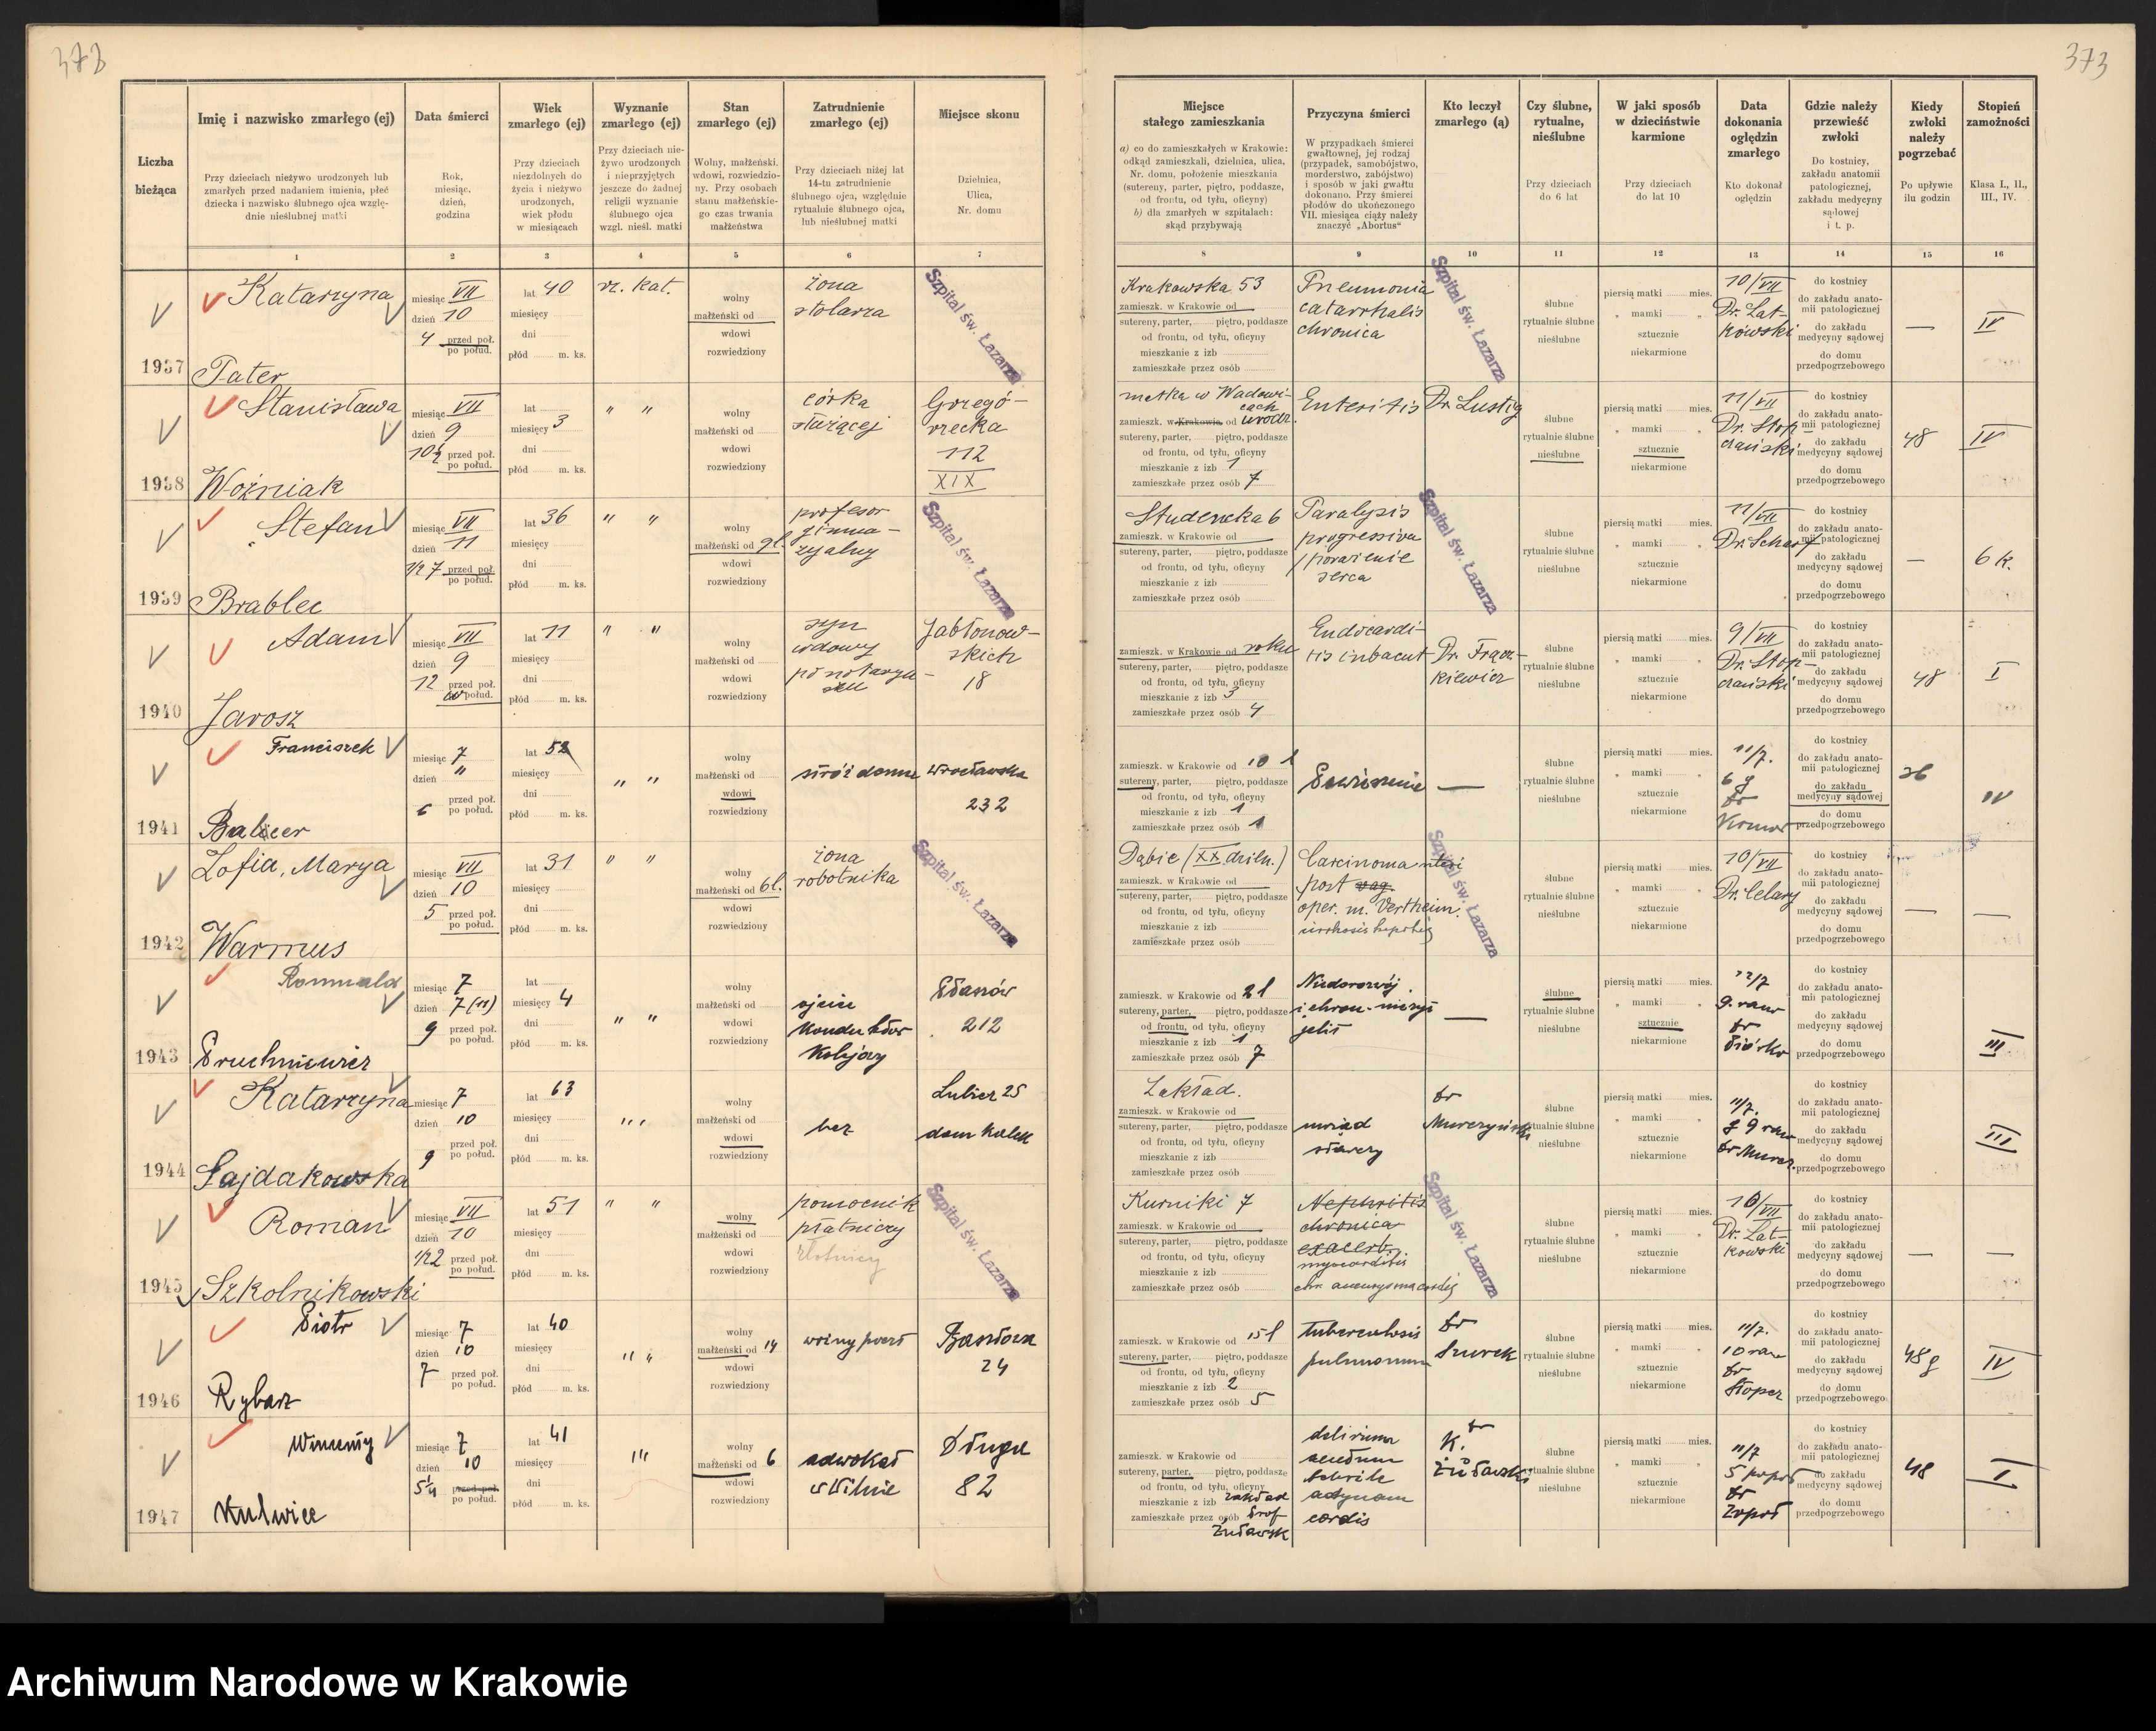 373
373
Liczba bieżąca
Imię i nazwisko zmarłego (ej)
Przy dzieciach nieżywo urodzonych lub
zmarłych przed nadaniem imienia, płeć
dziecka i nazwisko ślubnego ojca wzglę-
dnie nieślubnej matki
Data śmierci
Rok,
miesiąc,
dzień,
godzina
Wiek
zmarłego (ej)
Przy dzieciach
niezdolnych do
życia i nieżywo
urodzonych,
wiek płodu
w miesiącach
Wyznanie
zmarłego (ej)
Przy dzieciach nie-
żywo urodzonych
i nieprzyjętych
jeszcze do żadnej
religii wyznanie
ślubnego ojca
wzgl. nieśl. matki
Stan
zmarłego (ej)
Wolny, małżeński,
wdowi, rozwiedzio-
ny. Przy osobach
stanu małżeńskie-
go czas trwania
małżeństwa
Zatrudnienie
zmarłego (ej)
Przy dzieciach niżej lat
14-tu zatrudnienie
ślubnego ojca, względnie
rytualnie ślubnego ojca,
lub nieślubnej matki
Miejsce skonu
Dzielnica,
Ulica,
Nr. domu
Miejsce
stałego zamieszkania
a) co do zamieszkałych w Krakowie:
odkąd zamieszkali, dzielnica, ulica,
Nr. domu, położenie mieszkania
(sutereny, parter, piętro, poddasze,
od frontu, od tyłu, oficyny)
b) dla zmarłych w szpitalach:
skąd przybywają
Przyczyna śmierci
W przypadkach śmierci
gwałtownej, jej rodzaj
(przypadek, samobójstwo,
morderstwo, zabójstwo)
i sposób w jaki gwałtu
dokonano. Przy śmierci
płodów do ukończonego
VII. miesiąca ciąży należy
znaczyć „Abortus“
Kto leczył
zmarłego (ą)
Czy ślubne,
rytualne,
nieślubne
Przy dzieciach
do 6 lat
W jaki sposób
w dzieciństwie
karmione
Przy dzieciach
do lat 10
Data
dokonania
oględzin
zmarłego
Kto dokonał
oględzin
Gdzie należy
przewieść
zwłoki
Do kostnicy,
zakładu anatomii
patologicznej,
zakładu medycyny
sądowej
i t. p.
Kiedy
zwłoki
należy
pogrzebać
Po upływie
ilu godzin
Stopień
zamożności
Klasa I., II.,
III., IV.
1 2 3 4 5 6 7 8 9 10 11 12 13 14 15 16
1937
Katarzyna
Pater
miesiąc VII
dzień 10
4 przed poł.
po połud.
lat 40
miesięcy
dni
płód m. ks.
rz. kat.
wolny
małżeński od
wdowi
rozwiedziony
żona
stolarza
Szpital św. Łazarza
Krakowska 53
zamieszk. w Krakowie od
sutereny, parter, piętro, poddasze
od frontu, od tyłu, oficyny
mieszkanie z izb
zamieszkałe przez osób
Pneumonia
catarrhalis
chronica
Szpital św. Łazarza
ślubne
rytualnie ślubne
nieślubne
piersią matki mies.
„ mamki „
sztucznie
niekarmione
10/VII
Dr. Lat-
kowski
do kostnicy
do zakładu anato-
mii patologicznej
do zakładu
medycyny sądowej
do domu
przedpogrzebowego
—
IV
1938
Stanisława
Woźniak
miesiąc VII
dzień 9
10½ przed poł.
po połud.
miesięcy 3
" "
córka
służącej
Grzegó-
rzecka
112
XIX
matka w Wadowi-
cach
zamieszk. w Krakowie od urodz.
mieszkanie z izb 1
zamieszkałe przez osób 7
Enteritis
Dr. Lustig
nieślubne
sztucznie
11/VII
Dr. Stop-
czański
48
IV
1939
Stefan
Brablec
miesiąc VII
dzień 11
½ 7 przed poł.
po połud.
lat 36
" "
małżeński od 9 l.
profesor
gimna-
zyalny
Szpital św. Łazarza
Studencka 6
Paralysis
progressiva
/porażenie
serca
Szpital św. Łazarza
11/VII
Dr. Scharf
—
6 k.
1940
Adam
Jarosz
miesiąc VII
dzień 9
12 przed poł.
w połud.
lat 11
" "
syn
wdowy
po notaryu-
szu
Jabłonow-
skich
18
zamieszk. w Krakowie od roku
mieszkanie z izb 3
zamieszkałe przez osób 4
Endocardi-
tis
Dr. Frącz-
kiewicz
9/VII
Dr. Stop-
czański
48
I
1941
Franciszek
Balicer
miesiąc 7
dzień "
6 przed poł.
po połud.
lat 52
" "
wdowi
stróż domu
Wrocławska
232
zamieszk. w Krakowie od 10 l
mieszkanie z izb 1
zamieszkałe przez osób 1
Powieszenie
—
11/7.
6 g
dr
do zakładu
medycyny sądowej
IV
1942
Zofia, Marya
Warmus
miesiąc VII
dzień 10
5 przed poł.
po połud.
lat 31
" "
małżeński od 6 l.
żona
robotnika
Szpital św. Łazarza
Dąbie (XX dzieln.)
Carcinoma uteri
post vag.
oper. m. Vertheim.
cirrhosis hepatis
Szpital św. Łazarza
10/VII
Dr. Celary
—
—
1943
Romuald
Pruchniewicz
miesiąc 7
dzień 7 (11)
9 przed poł.
po połud.
miesięcy 4
" "
ojciec
konduktor
kolejowy
212
zamieszk. w Krakowie od 2 l
mieszkanie z izb 1
zamieszkałe przez osób 7
Niedorozwój
i chron. nieżyt
jelit
—
ślubne
sztucznie
9 rano
dr
III
1944
Katarzyna
Sajdakowska
miesiąc 7
dzień 10
9 przed poł.
po połud.
lat 63
" "
wdowi
bez
Lubicz 25
dom kalek
Zakład.
uwiąd
starczy
dr
Murczyński
11/7.
g 9 rano
dr Murcz.
III
1945
Roman
Szkolnikowski
miesiąc VII
dzień 10
½2 przed poł.
po połud.
lat 51
" "
wolny
pomocnik
płatniczy
złotniczy
Szpital św. Łazarza
Kurniki 7
Nephritis
chronica
exacerb.
myocarditis
chr. aneurysma cordis
Szpital św. Łazarza
10/VII
Dr. Lat-
kowski
—
—
1946
Piotr
Rybarz
miesiąc 7
dzień 10
7 przed poł.
po połud.
lat 40
" "
małżeński od 14
woźny poczt
24
zamieszk. w Krakowie od 15 l
mieszkanie z izb 2
zamieszkałe przez osób 5
tuberculosis
pulmonum
dr
Szurek
11/7.
10 rano
dr
Stopcz
48 g
IV
1947
Wincenty
Kulwiec
miesiąc 7
dzień 10
5¼ przed poł.
po połud.
lat 41
małżeński od 6
adwokat
w Wilnie
Długa
82
mieszkanie z izb zakład
zamieszkałe przez osób Prof
Żuławsk
delirium
acutum
febrile
adynam
cordis
dr
K.
Żuławski
11/7
5 popoł
dr
48
I
Archiwum Narodowe w Krakowie